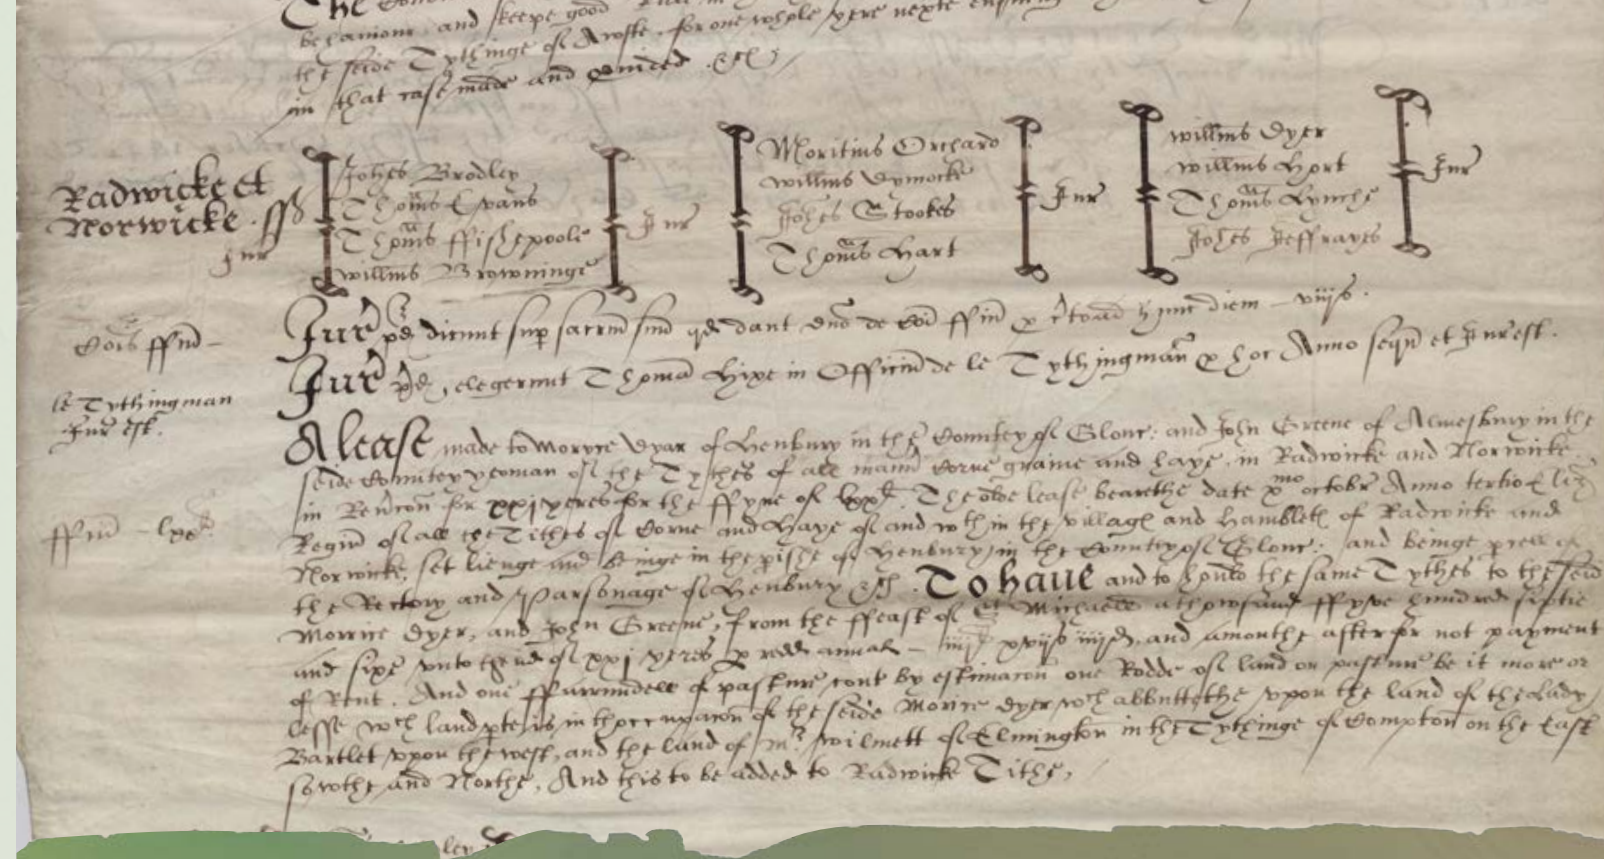 behaviour and keepe good
the seide Tythinge of Awste for one whole yere nexte
in that case made and
Radwicke et
Norwicke
Jur
Johes Brodley
Thoms Evans
Thoms ffishepoole
willms Browninge
Jur
Moritius Orchard
willms Dymocke
Johes Stookes
Thoms Hart
Jur
willms Dyer
willms Hort
Thoms Lynche
Johes Jeffrayes
Jur
Cois ffin
Jur pd dicunt sup sacrm suu qd dant dno de Coi ffin hunc diem viijs.
le Tythingman
Jur est.
Jur pd, elegerunt Thomam Hixe in Officiu de le Tythingman p hoc Anno sequ et Jur est.
A lease made to Moryce Dyar of Henbury in the Countey of Glouc: and John Greene of Almesbury in the
seide Countey yeoman of the Tythes of all mann Corne graine and haye, in Radwicke and Norwicke
ffin — lxxli
in Rercon for xxj yeres for the ffyne of lxxli. The olde lease bearethe date xmo octobr Anno tertio Eliz
Regin of all the Tithes of Corne and Haye of and wthin the villag and Hamblet of Radwicke and
Norwicke, set lienge and beinge in the pishe of Henbury, in the Countey of Glouc: and beinge pcell of
the Rectory and Parsonage of Henbury &c. To haue and to hould the same Tythes to the seid
Morrice Dyer, and John Greene, from the ffeast of St Michaell a thowsand ffyve hundred sixtie
and sixe vnto thend of xxj yeres p redd annat — iiijli xviijs iiijd, and a monthe after for not payment
of Rent. And one ffurrundell of pasture cont by estimacon one Rodde of land or pasture be it more or
lesse wch land pte is in thoccupacon of the seide Morice Dyer wch abbuttethe vpon the land of the Lady
Bartlet vpon the west, and the land of Mr Wilmett of Elmington in the Tythinge of Compton on the East
sowthe and Northe, And this to be added to Radwicke Tithe,